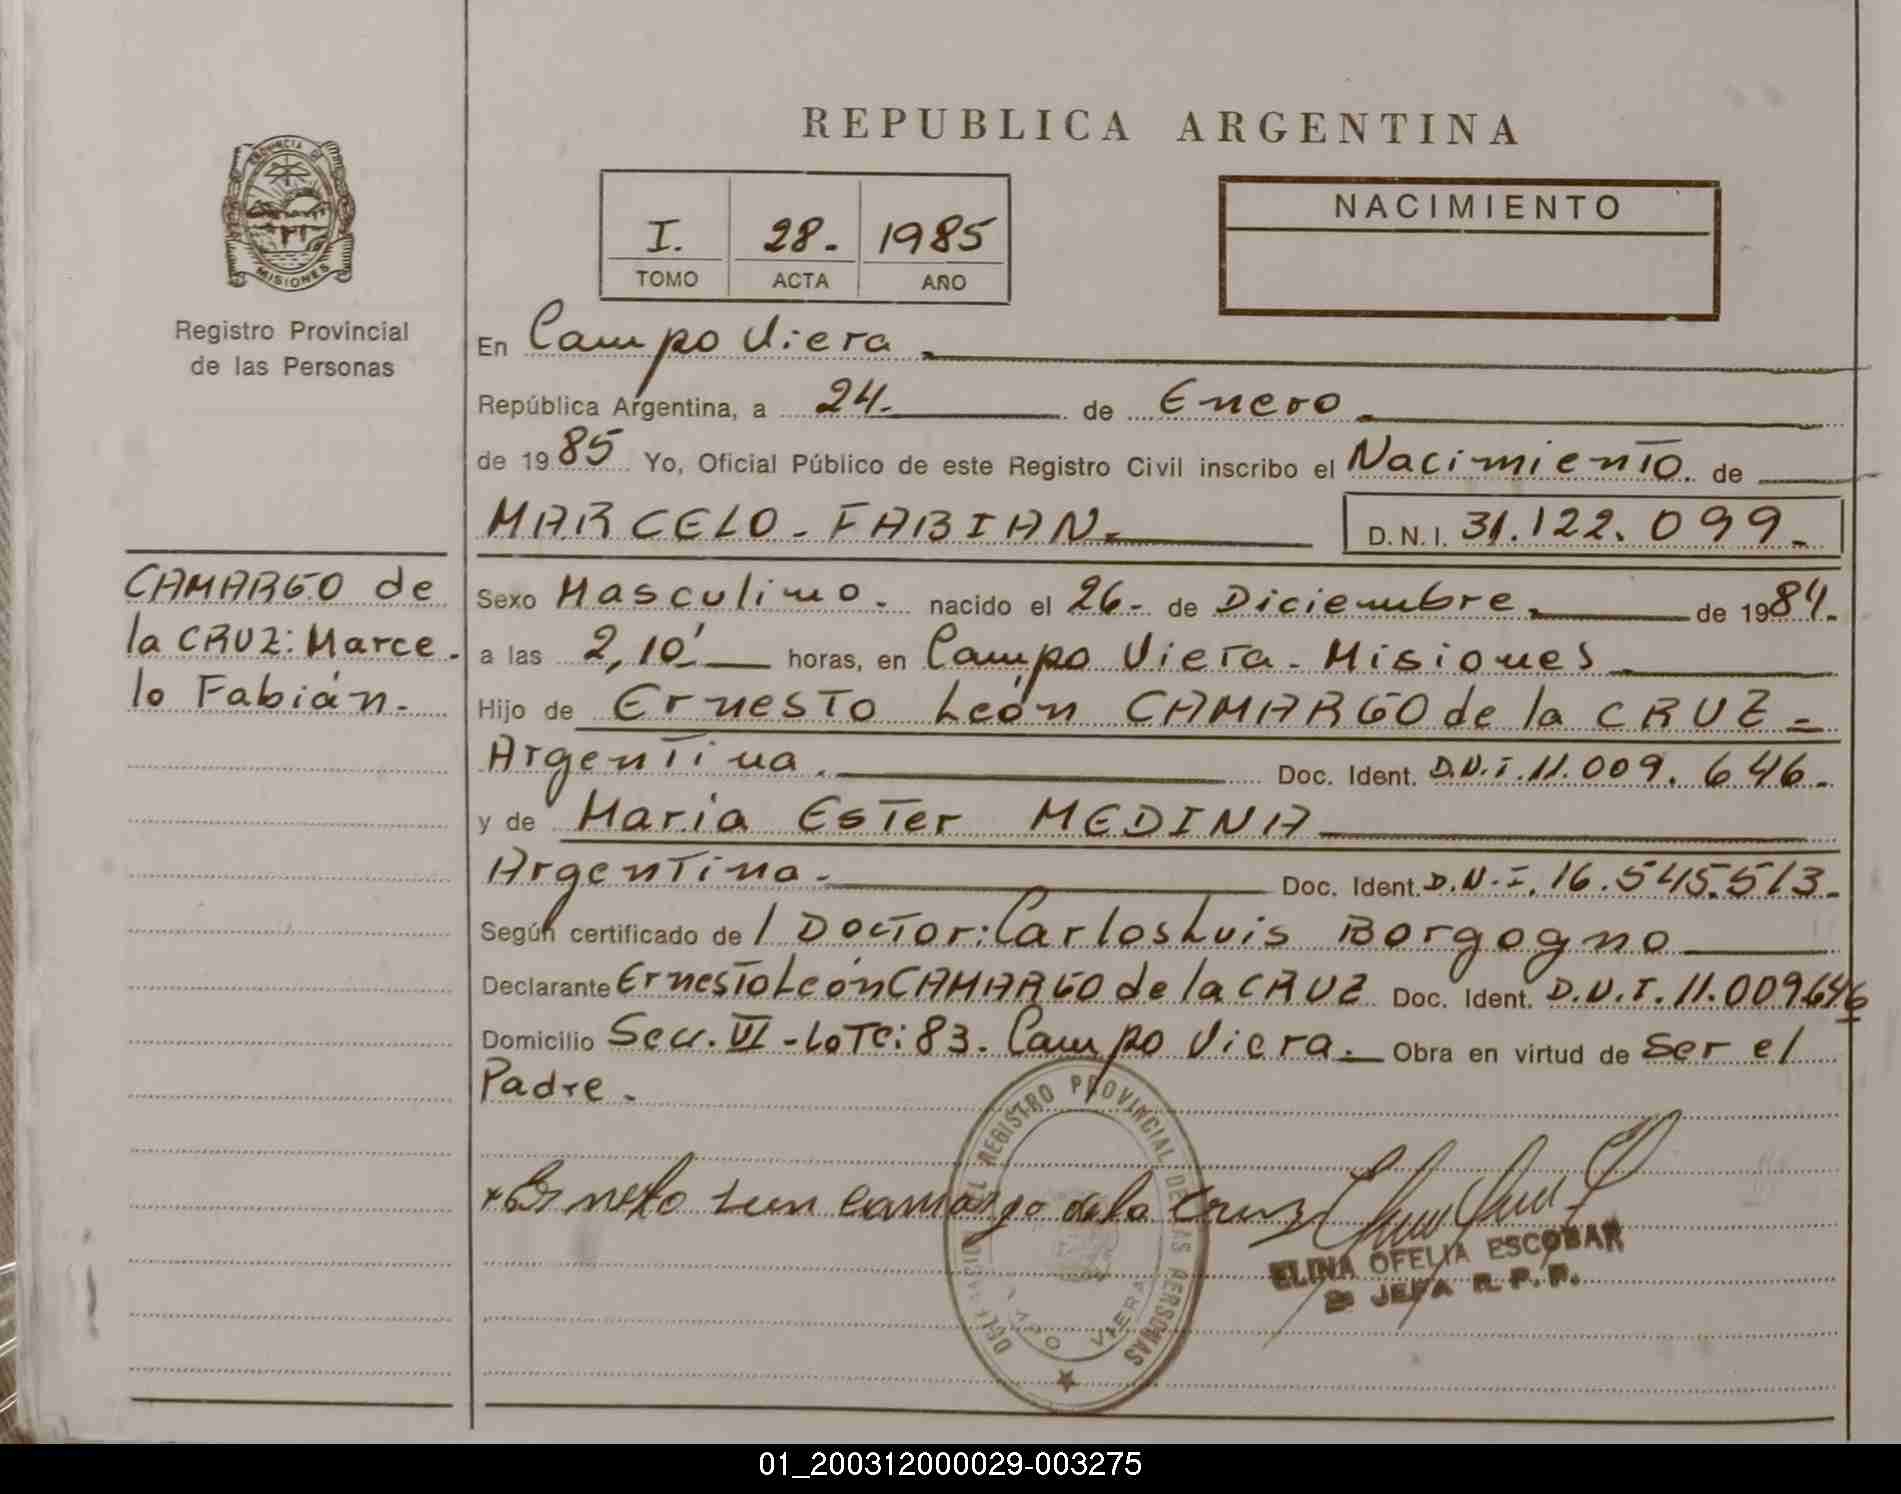 REPUBLICA ARGENTINA
PROVINCIA DE
MISIONES
Registro Provincial
de las Personas
I. 28. 1985
TOMO ACTA AÑO
NACIMIENTO
En Campo Viera
República Argentina, a 24. de Enero
de 1985 Yo, Oficial Público de este Registro Civil inscribo el Nacimiento. de
MARCELO-FABIAN. D.N.I. 31.122.099.
CAMARGO de
la CRUZ: Marce-
lo Fabián.
Sexo Masculino. nacido el 26. de Diciembre. de 1984.
a las 2,10' horas, en Campo Viera - Misiones
Hijo de Ernesto León CAMARGO de la CRUZ =
Argentina. Doc. Ident. D.N.I. 11.009.646.
y de Maria Ester MEDINA
Argentina. Doc. Ident. D.N.I. 16.545.513.
Según certificado de l Doctor: Carlos Luis Borgogno
Declarante Ernesto León CAMARGO de la CRUZ Doc. Ident. D.N.I. 11.009.646
Domicilio Secc. VI - Lote: 83. Campo Viera. Obra en virtud de Ser el
Padre.
REGISTRO PROVINCIAL DE LAS PERSONAS
VIERA
camargo de la Cruz
ELINA OFELIA ESCOBAR
JEFA R.P.P.
01_200312000029-003275